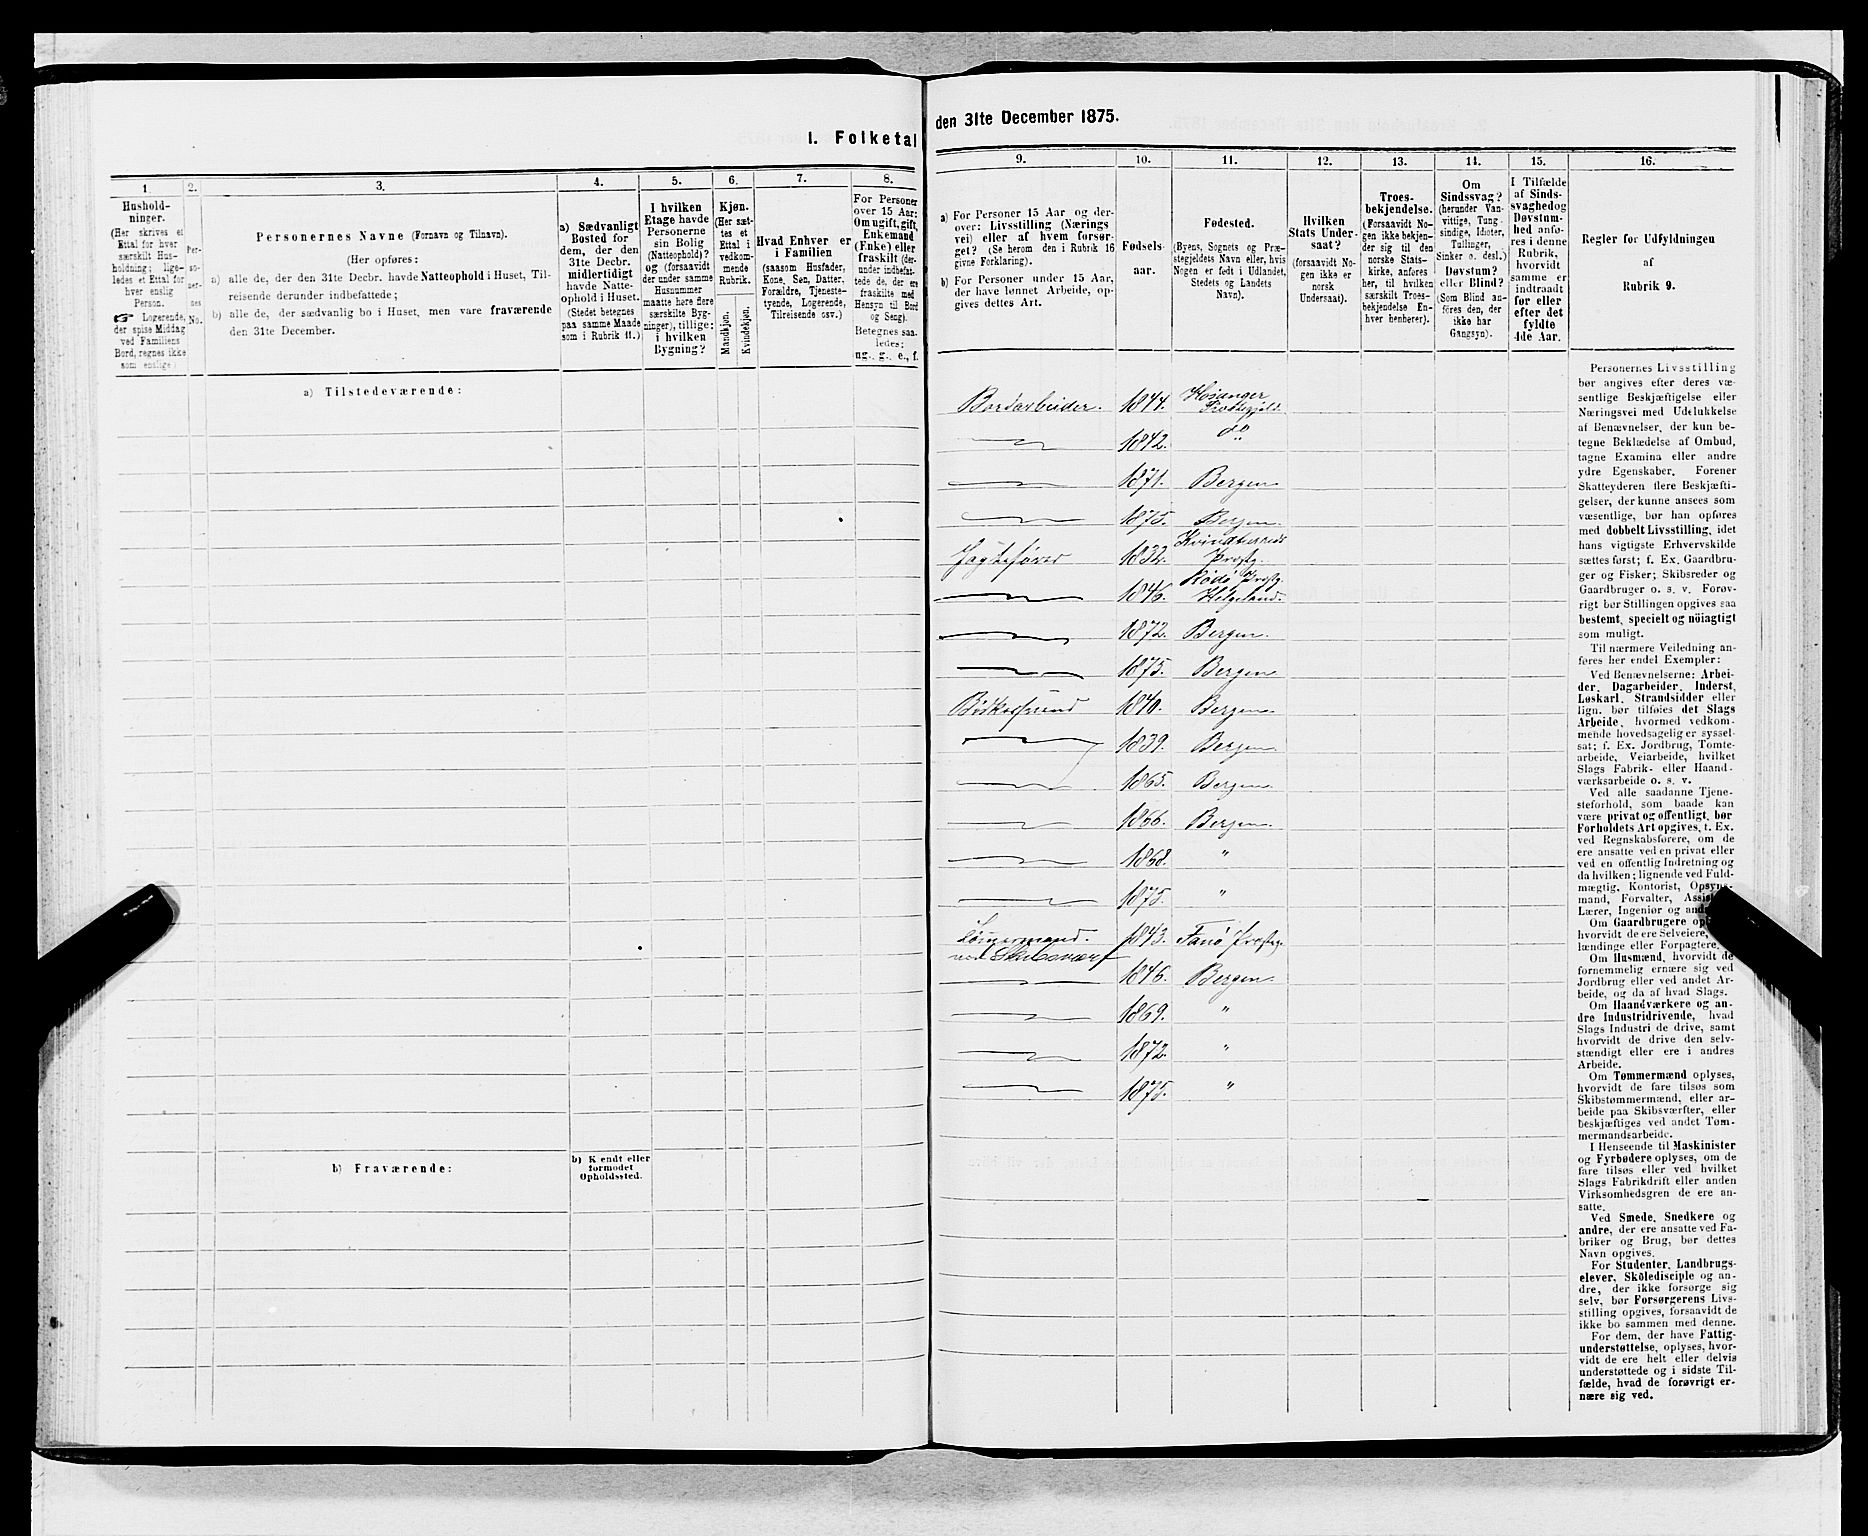 I. Folketal
den 31te December 1875.
1.
2.
3.
4.
5.
6.
7.
8.
Hushold-
ninger.
(Her skrives et
Ettal for hver
særskilt Hus-
holdning; lige-
ledes et Ettal for
hver enslig
Person.
☞ Logerende,
der spise Middag
ved Familiens
Bord, regnes ikke
som enslige)
Per-
so-
ner-
nes
No.
Personernes Navne (Fornavn og Tilnavn).
(Her opføres:
a) alle de, der den 31te Decbr. havde Natteophold i Huset, Til-
reisende derunder indbefattede;
b) alle de, der sædvanlig bo i Huset, men vare fraværende
den 31te December.
a) Sædvanligt
Bosted for
dem, der den
31te Decbr.
midlertidigt
havde Natte-
ophold i Huset.
(Stedet betegnes
paa samme Maade
som i Rubrik 11.)
I hvilken
Etage havde
Personerne
sin Bolig
(Natteophold)?
og (forsaavidt
der under samme
Husnummer
maatte høre flere
særskilte Byg-
ninger), tillige:
i hvilken
Bygning?
Kjøn.
(Her sæt-
tes et
Ettal i
vedkom-
mende
Rubrik.
Mandkjøn.
Kvindekjøn.
Hvad Enhver er
i Familien
(saasom Husfader,
Kone, Søn, Datter,
Forældre, Tjeneste-
tyende, Logerende,
Tilreisende osv.)
For Personer
over 15 Aar:
Om ugift, gift,
Enkemand
(Enke) eller
fraskilt (der-
under indbefat-
tede de, der ere
fraskilte med
Hensyn til Bord
og Seng).
Betegnes saa-
ledes:
ug., g., e., f.
a) Tilstedeværende:
b) Fraværende:
b) Kjendt eller
formodet
Opholdssted.
9.
10.
11.
12.
13.
14.
15.
16.
a) For Personer 15 Aar og der-
over: Livsstilling (Nærings
vei) eller af hvem forsør-
get? (Se herom den i Rubrik 16
givne Forklaring).
b) For Personer under 15 Aar,
der have lønnet Arbeide, op-
gives dettes Art.
Fødsels-
aar.
Fødested.
(Byens, Sognets og Præ-
stegjeldets Navn eller, hvis
Nogen er født i Udlandet,
Stedets og Landets
Navn).
Hvilken
Stats Under-
saat?
(forsaavidt No-
gen ikke er
norsk
Undersaat).
Troes-
bekjendelse.
(Forsaavidt No-
gen ikke bekjen-
der sig til den
norske Stats-
kirke, anføres
her, til hvilken
særskilt Troes-
bekjendelse En-
hver henhører).
Om
Sindssvag?
(herunder Van-
vittige, Tung-
sindige, Idioter,
Tullinger,
Sinker o. desl.)
Døvstum?
eller Blind?
(Som Blind an-
føres den, der
ikke har
Gangsyn).
I Tilfælde
af Sinds-
svaghed og
Døvstum-
hed anfø-
res i denne
Rubrik,
hvorvidt
samme er
indtraadt
før eller
efter det
fyldte
4de Aar.
Regler for Udfyldningen
af
Rubrik 9.
Bordarbeider. 1844. Hosanger
Præstegjeld.
1842. do
1871. Bergen
1875. Bergen
Jagtefører 1832. Kvindherreds
Præstg.
1846. Rødø Præstg.
Helgeland.
1872. Bergen.
1875. Bergen
Bødkersvend 1840. Bergen
1839. Bergen
1865. Bergen
1866. Bergen
1868. "
1875. "
Tømermand. 1843. Fanø Præstg.
ved Skibsværft
1846. Bergen
1869. "
1872. "
1875. "
Personernes Livsstilling
bør angives efter deres væ-
sentlige Beskjæftigelse eller
Næringsvei med Udelukkelse
af Benævnelser, der kun be-
tegne Beklædelse af Ombud,
tagne Examina eller andre
ydre Egenskaber. Forener
Skatteyderen flere Beskjæfti-
gelser, der kunne ansees som
væsentlige, bør han opføres
med dobbelt Livsstilling, idet
hans vigtigste Erhvervskilde
sættes først; f. Ex. Gaardbru-
ger og Fisker; Skibsreder og
Gaardbruger o. s. v. Forøv-
rigt bør Stillingen opgives saa
bestemt, specielt og nöiagtigt
som muligt.
Til nærmere Veiledning an-
føres her endel Exempler:
Ved Benævnelserne: Arbei-
der, Dagarbeider, Inderst,
Løskarl, Strandsidder eller
lign. bør tilføies det Slags
Arbeide, hvormed vedkom-
mende hovedsagelig er syssel-
sat; f. Ex. Jordbrug, Tomte-
arbeide, Veiarbeide, hvilket
Slags Fabrik- eller Haand-
værksarbeide o. s. v.
Ved alle saadanne Tjene-
steforhold, som baade kan
være privat og offentligt, bør
Forholdets Art opgives, t. Ex.
ved Regnskabsførere, om de
ere ansatte ved en privat eller
ved en offentlig Indretning og
da hvilken; lignende ved Fuld-
mægtig, Kontorist, Opsyns-
mand, Forvalter,
Lærer, Ingeniør og
Om Gaardbrugere
hvorvidt de ere Selveiere,
lændinge eller Forpagtere.
Om Husmænd, hvorvidt de
fornemmelig ernære sig ved
Jordbrug eller ved andet Ar-
beide, og da af hvad Slags.
Om Haandværkere og an-
dre Industridrivende, hvad
Slags Industri de drive, samt
hvorvidt de drive den selv-
stændigt eller ere i andres
Arbeide.
Om Tømmermænd oplyses,
hvorvidt de fare tilsøs som
Skibstømmermænd, eller ar-
beide paa Skibsværfter, eller
beskjæftiges ved andet Tøm-
mermandsarbeide.
I Henseende til Maskinister
og Fyrbødere oplyses, om de
fare tilsøs eller ved hvilket
Slags Fabrikdrift eller anden
Virksomhedsgren de ere an-
satte.
Ved Smede, Snedkere og
andre, der ere ansatte ved Fa-
briker og Brug, bør dettes
Navn opgives.
For Studenter, Landbrugs-
elever, Skôledisciple og an-
dre, der ikke forsørge sig
selv, bør Forsørgerens Livs-
stilling opgives, forsaavidt de
ikke bo sammen med denne.
For dem, der have Fattig-
understøttelse, oplyses, hvor-
vidt de ere helt eller delvis
understøttede og i sidste Til-
fælde, hvad de forøvrigt er-
nære sig ved.